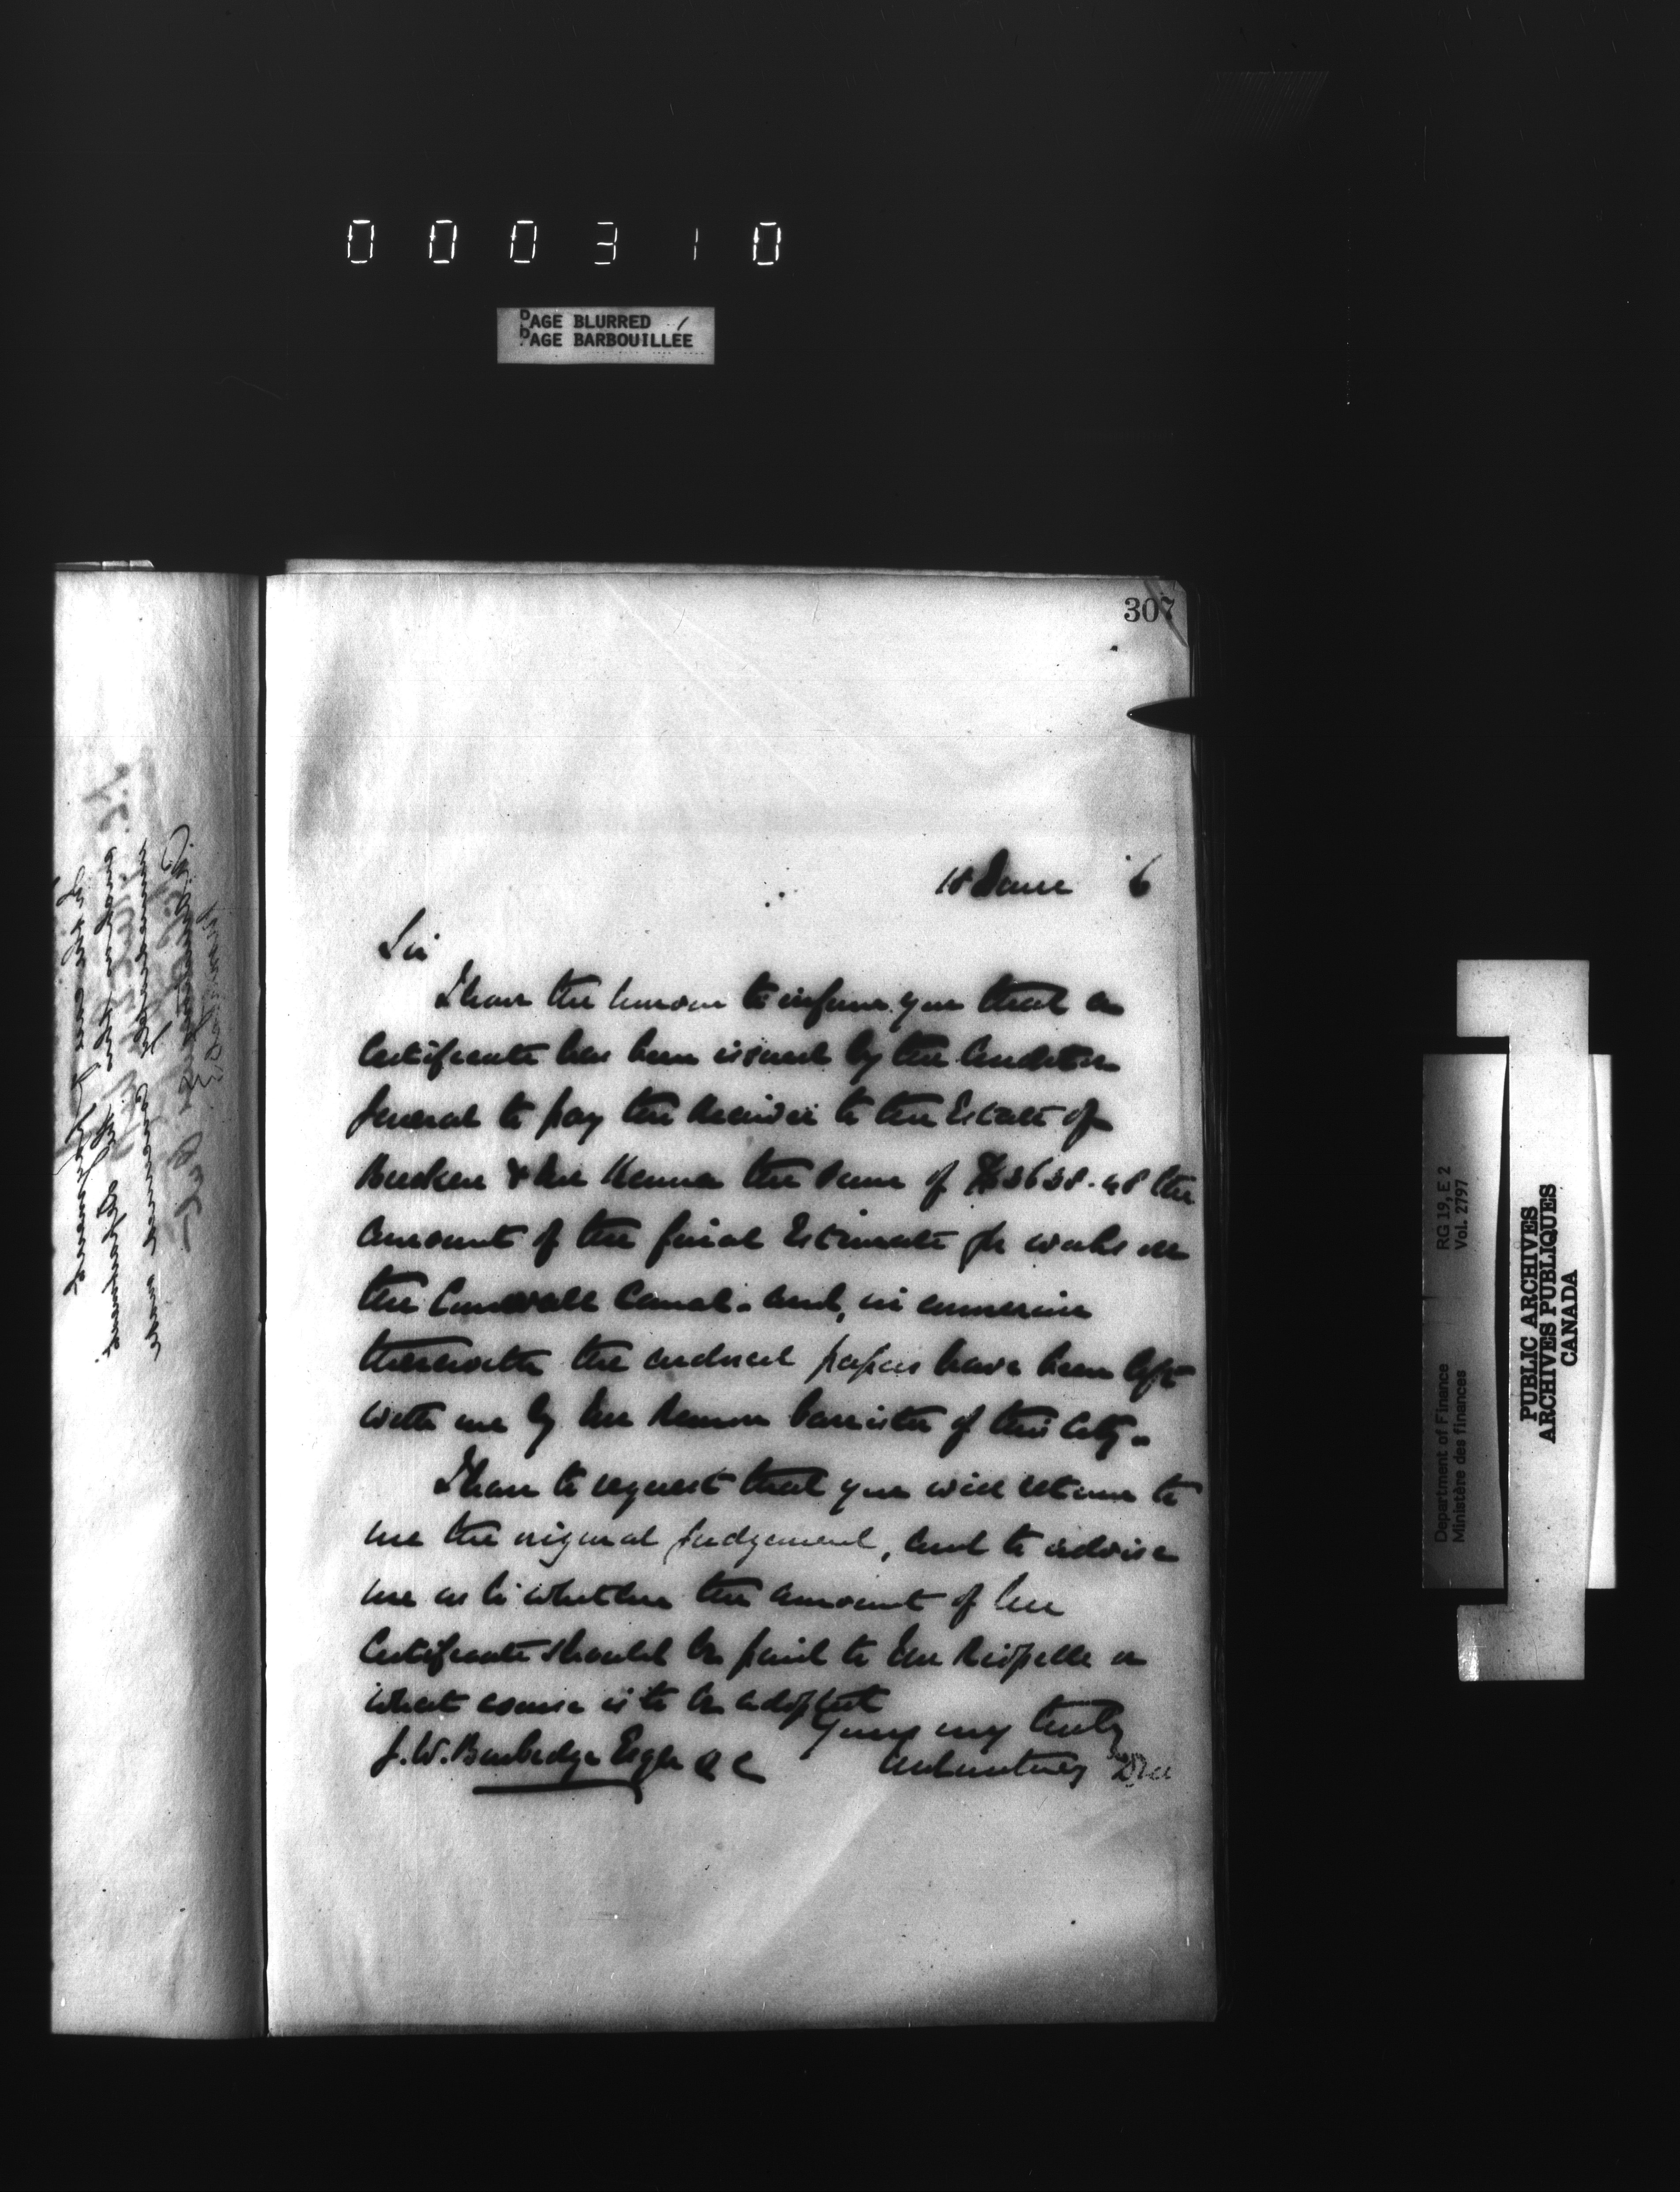 000310
PAGE BLURRED
PAGE BARBOUILLÉE
307
18 June 6
Sir
I have the honour to inform you that a
Certificate has been issued by the Auditor
General to pay the to the Estate of
the sum of $3638.48 the
amount of the final Estimate for works on
the Cornwall Canal. and, in connexion
therewith the enclosed papers have been left
with me by Mr barrister of this City.
I have to request that you will return to
me the original judgement, and to advise
me as to whether the amount of the
Certificate should be paid to Mr Riopelle or
what course is to be adopted
Yours very truly
J. W. Burbidge Esqre Q C
J M Courtney D.M.
RG 19, E 2
Vol. 2797
Department of Finance
Ministère des finances
PUBLIC ARCHIVES
ARCHIVES PUBLIQUES
CANADA